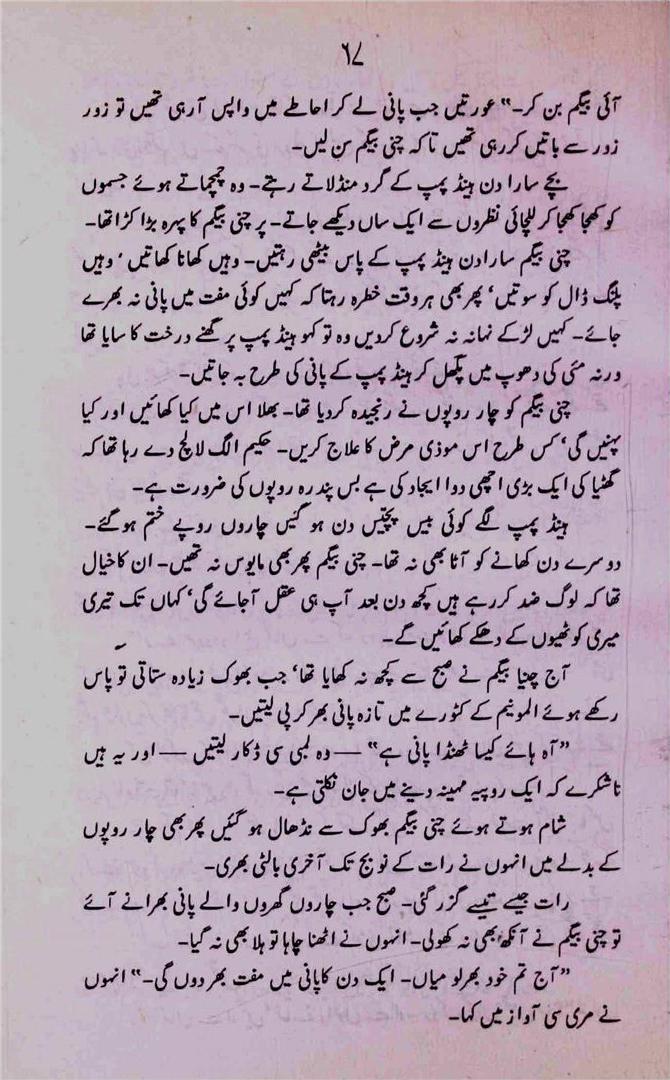 ٦٧
آئی بیگم بن کر۔" عورتیں جب پانی لے کر احاطے میں واپس آ رہی تھیں تو زور
زور سے باتیں کر رہی تھیں تاکہ چنی بیگم سن لیں۔
بچے سارا دن ہینڈ پمپ کے گرد منڈلاتے رہتے۔ وہ چمچماتے ہوئے جسموں
کو کھجا کھجا کر للچائی نظروں سے ایک ساں دیکھے جاتے۔ پر چنی بیگم کا پہرہ بڑا کڑا تھا۔
چنی بیگم سارا دن ہینڈ پمپ کے پاس بیٹھی رہتیں۔ وہیں کھانا کھاتیں' وہیں
پلنگ ڈال کو سوتیں' پھر بھی ہر وقت خطرہ رہتا کہ کہیں کوئی مفت میں پانی نہ بھرے
جائے۔ کہیں لڑکے نہانہ نہ شروع کردیں وہ تو کہو ہینڈ پمپ پر گھنے درخت کا سایا تھا
ورنہ مئی کی دھوپ میں پگھل کر ہینڈ پمپ کے پانی کی طرح بہ جاتیں۔
چنی بیگم کو چار روپوں نے رنجیدہ کردیا تھا۔ بھلا اس میں کیا کھائیں اور کیا
پہنیں گی' کس طرح اس موذی مرض کا علاج کریں۔ حکیم الگ لالچ دے رہا تھا کہ
گھٹیا کی ایک بڑی اچھی دوا ایجاد کی ہے بس پندرہ روپوں کی ضرورت ہے۔
ہینڈ پمپ لگے کوئی بیس پچیس دن ہو گئیں چاروں روپے ختم ہوگئے۔
دوسرے دن کھانے کو آٹا بھی نہ تھا۔ چنی بیگم پھر بھی مایوس نہ تھیں۔ ان کا خیال
تھا کہ لوگ ضد کر رہے ہیں کچھ دن بعد آپ ہی عقل آجائے گی' کہاں تک تیری
میری کوٹھیوں کے دھکے کھائیں گے۔
آج چنیا بیگم نے صبح سے کچھ نہ کھایا تھا' جب بھوک زیادہ ستاتی تو پاس
رکھے ہوئے المونیم کے کٹورے میں تازہ پانی بھر کر پی لیتیں۔
"آہ ہائے کیسا ٹھنڈا پانی ہے" — وہ لمبی سی ڈکار لیتیں — اور یہ ہیں
ناشکرے کہ ایک روپیہ مہینہ دینے میں جان نکلتی ہے۔
شام ہوتے ہوئے چنی بیگم بھوک سے نڈھال ہو گئیں پھر بھی چار روپوں
کے بدلے میں انہوں نے رات کے نو بج تک آخری بالٹی بھری۔
رات جیسے تیسے گزر گئی۔ صبح جب چاروں گھروں والے پانی بھرانے آئے
تو چنی بیگم نے آنکھ بھی نہ کھولی۔ انہوں نے اٹھنا چاہا تو ہلا بھی نہ گیا۔
"آج تم خود بھرلو میاں۔ ایک دن کا پانی میں مفت بھر دوں گی۔" انہوں
نے مری سی آواز میں کہا۔